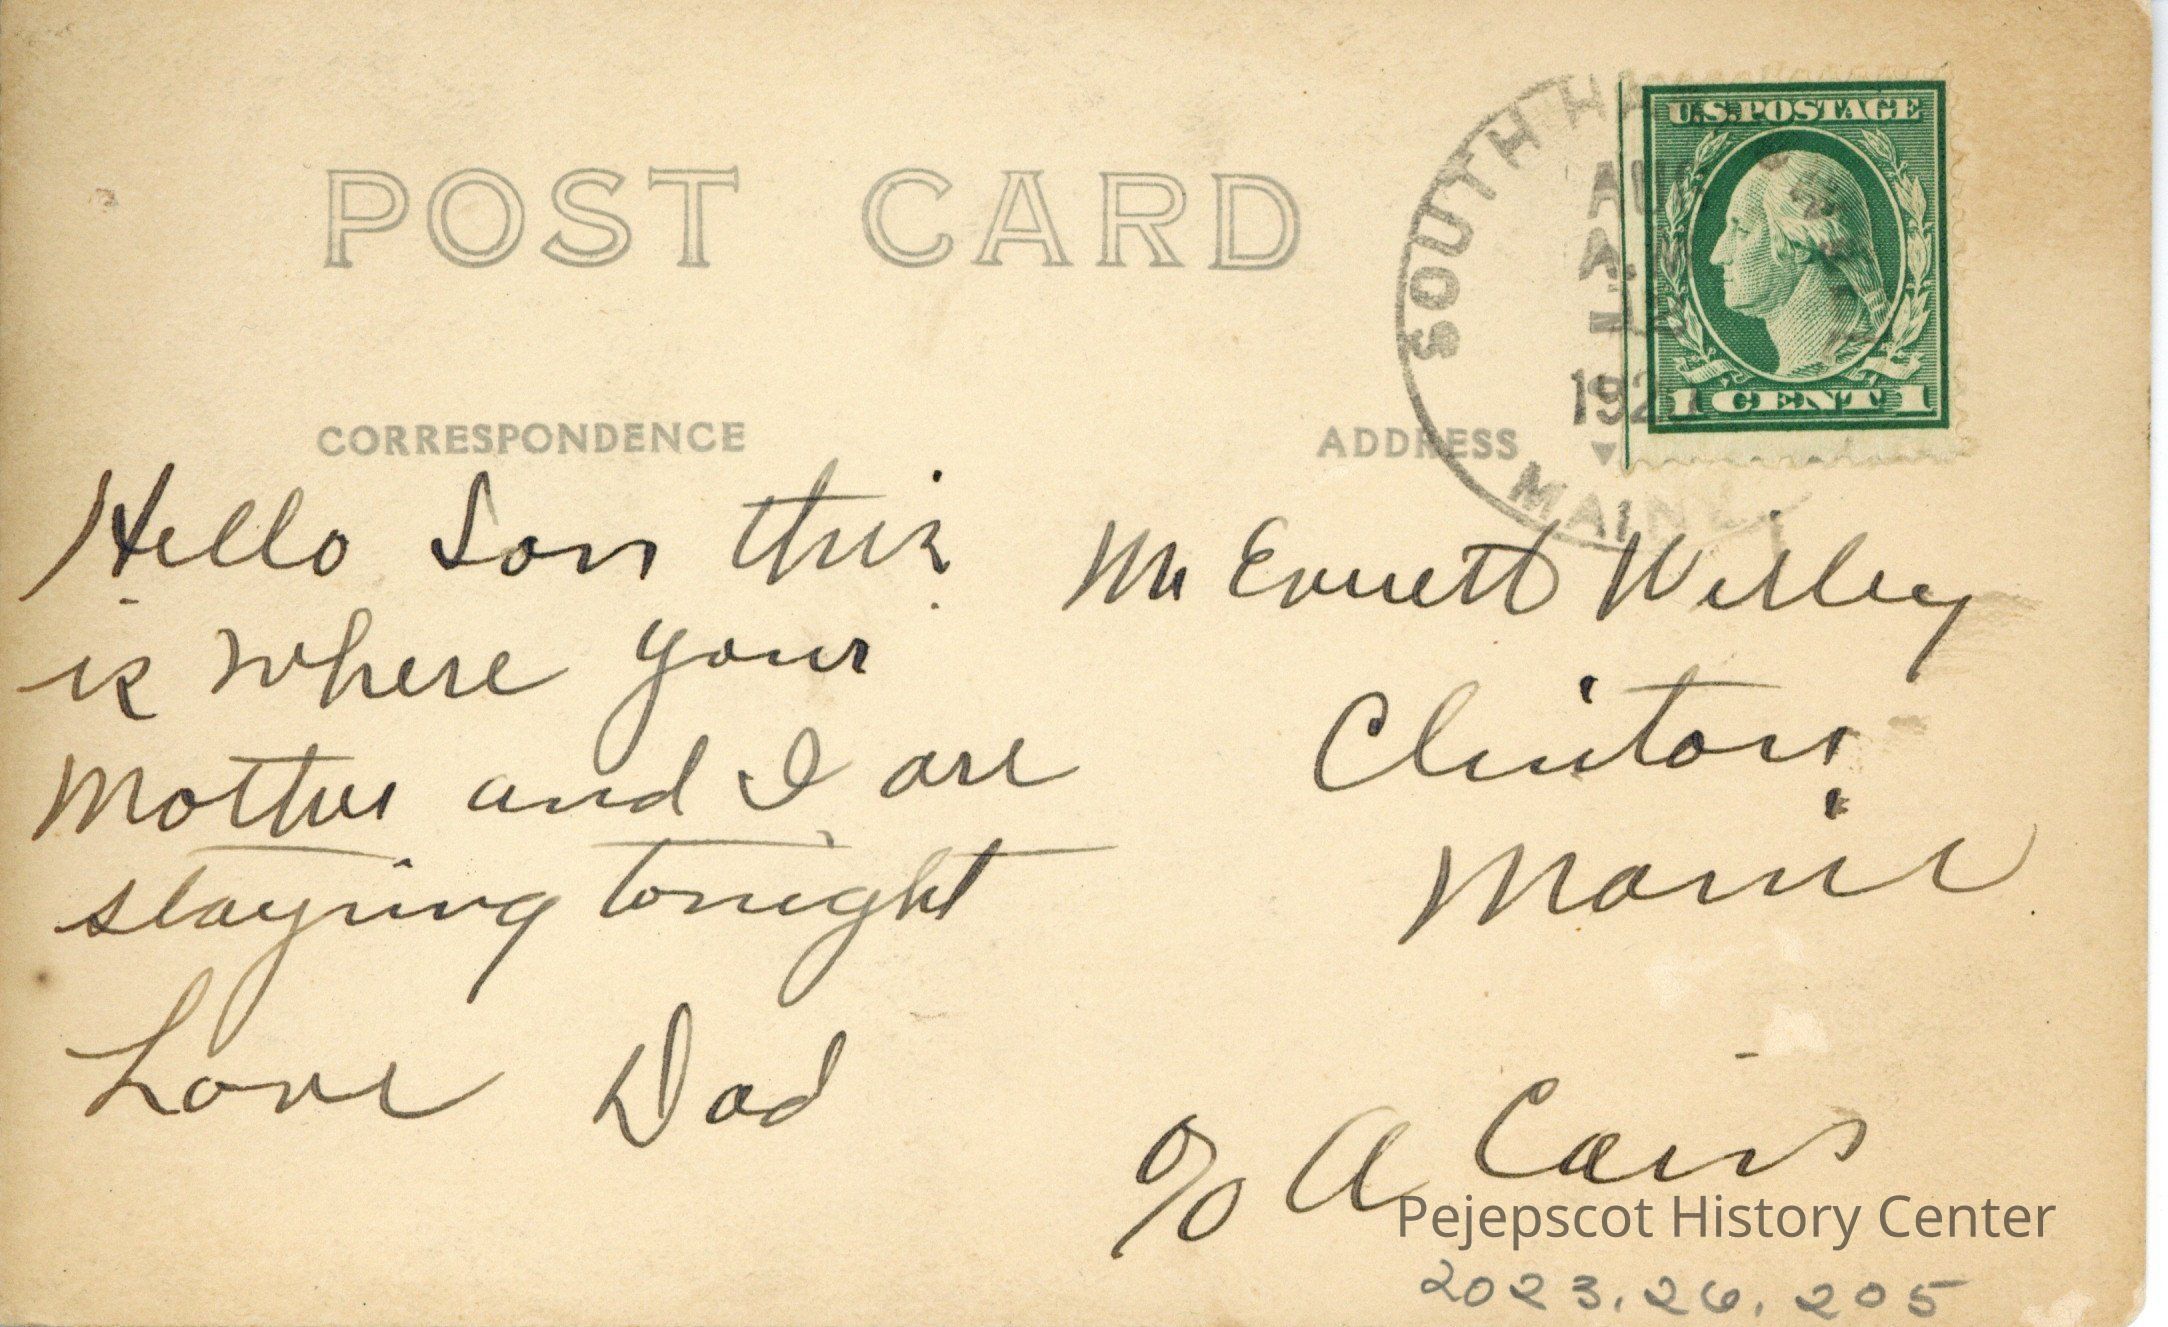 POST CARD
SOUTH HA
AUG
A.M
192
MAINE
U.S. POSTAGE
1 CENT 1
CORRESPONDENCE
ADDRESS
Hello Son this
is where your
Mother and I are
staying tonight
Love Dad
Mr Everett Willey
Clinton
Maine
c/o A Cain
Pejepscot History Center
2023.26.205